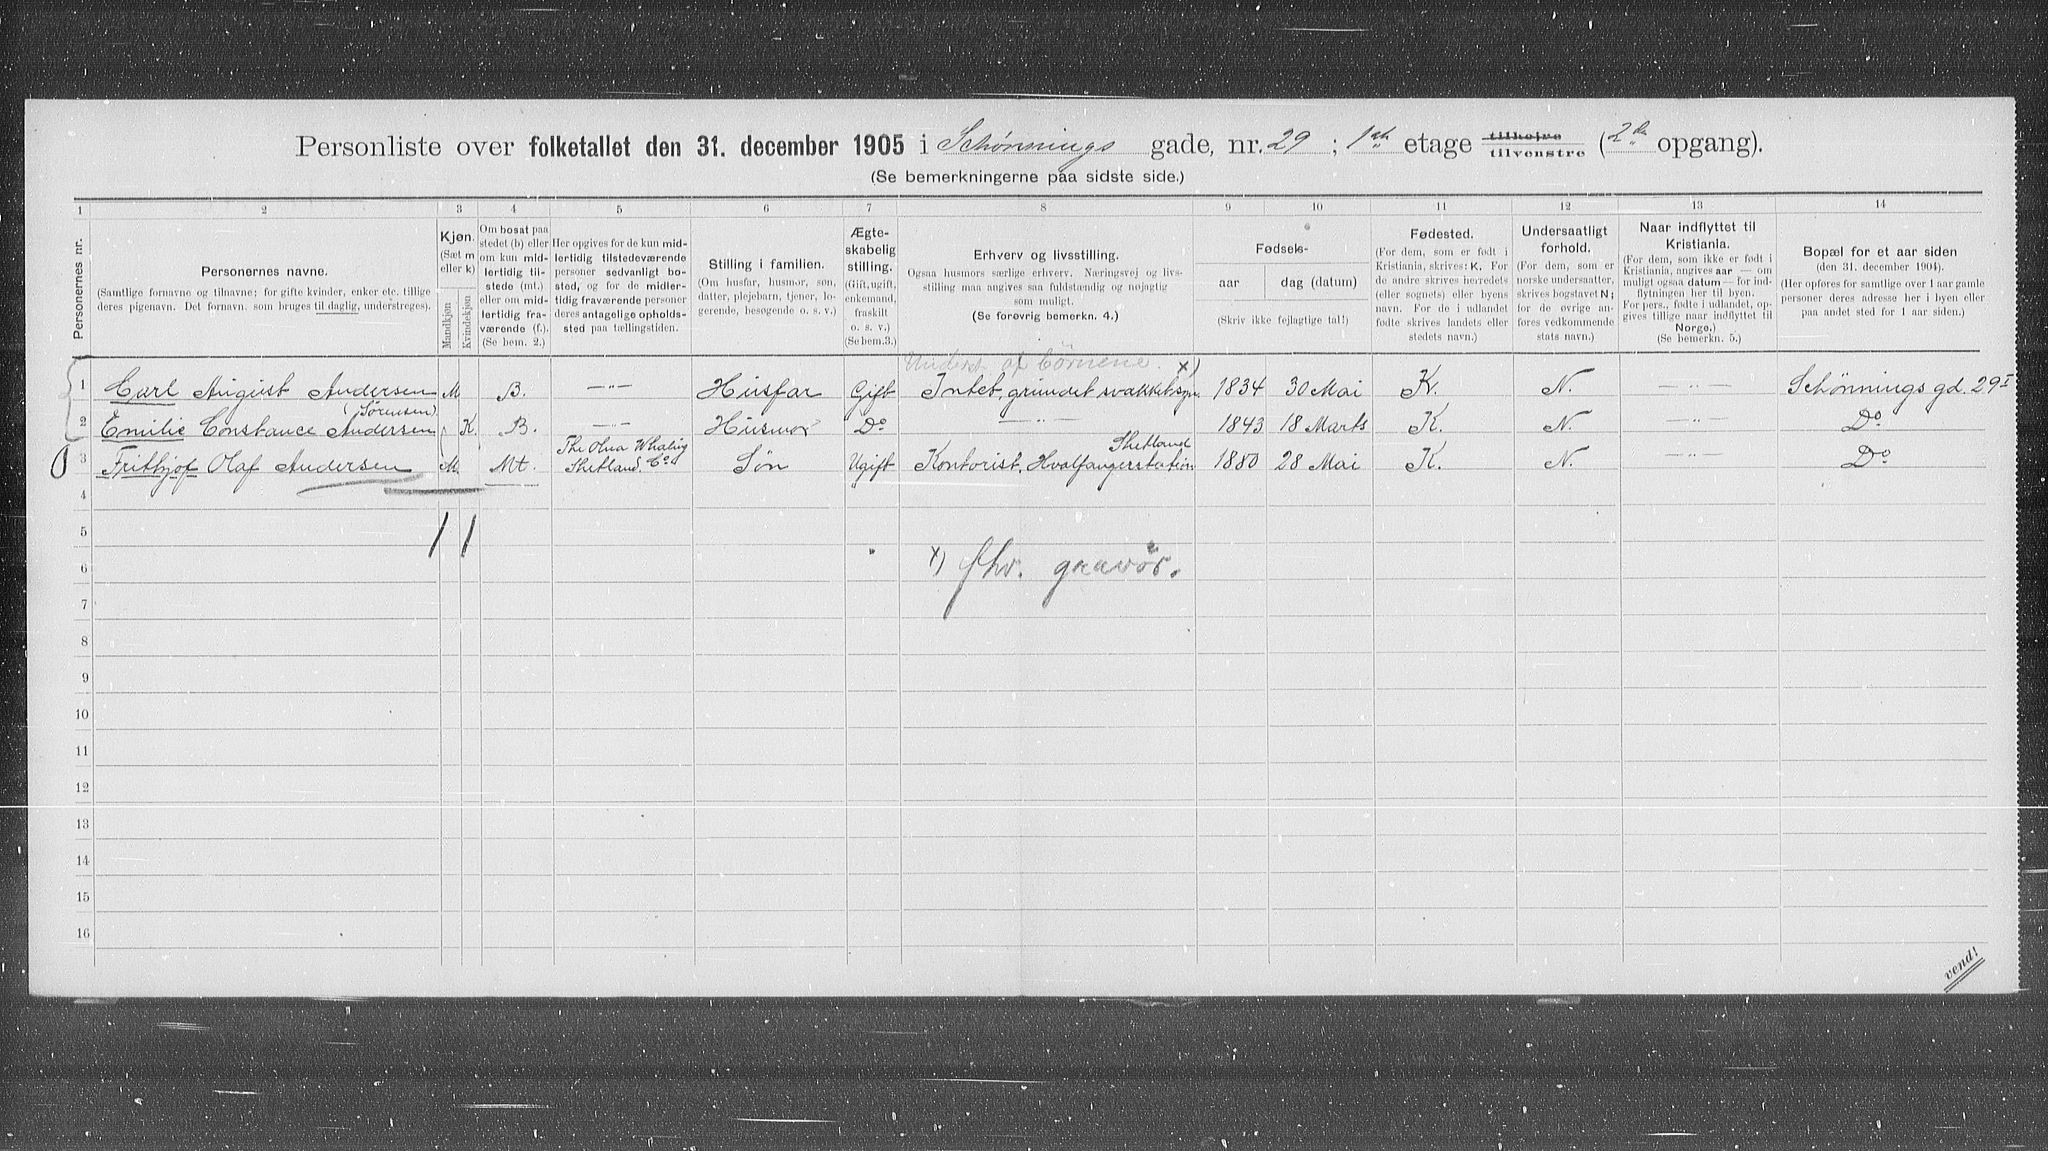 Personliste over folketallet den 31. december 1905 i Schønnings gade, nr. 29 ; 1ste etage tilhøire tilvenstre (2den opgang).
(Se bemerkningerne paa sidste side.)
1 2 3 4 5 6 7 8 9 10 11 12 13 14
Personernes nr.
Personernes navne.
(Samtlige fornavne og tilnavne; for gifte kvinder, enker etc. tillige deres pigenavn. Det fornavn. som bruges til daglig, understreges).
Kjøn.
(Sæt m eller k)
Mandkjøn
Kvindekjøn
Om bosat paa stedet (b) eller om kun midlertidig tilstede (mt.) eller om midlertidig fraværende (f.).
(Se bem. 2.)
Her opgives for de kun midlertidig tilstedeværende personer sedvanligt bosted, og for de midlertidig fraværende personer deres antagelige opholdssted paa tællingstiden.
Stilling i familien.
(Om husfar, husmor, søn, datter, plejebarn, tjener, logerende, besøgende o. s. v.)
Ægteskabelig stilling.
(Gift, ugift, enkemand, fraskilt o. s. v.)
(Se bem.3.)
Erhverv og livsstilling.
Ogsaa husmors særlige erhverv. Næringsvej og livsstilling maa angives saa fuldstændig og nøjagtig som muligt.
(Se forøvrig bemerkn. 4.)
Fødsels-
aar
dag (datum)
(Skriv ikke fejlagtige tal!)
Fødested.
(For dem, som er født i Kristiania, skrives: K. For de andre skrives herredets (eller sognets) eller byens navn. For de i udlandet fødte skrives landets eller stedets navn.)
Undersaatligt forhold.
(For dem, som er norske undersaatter, skrives bogstavet N; for de øvrige anføres vedkommende stats navn.)
Naar indflyttet til Kristiania.
(For dem, som ikke er født i Kristiania, angives aar — om muligt ogsaa datum — for indflytningen her til byen. For pers., fødte i udlandet, opgives tillige naar indflyttet til Norge.)
(Se bemerkn. 5.)
Bopæl for et aar siden
(den 31. december 1904).
(Her opføres for samtlige over 1 aar gamle personer deres adresse her i byen eller paa andet sted for 1 aar siden.)
Underst. af børnene. x)
1 Carl August Andersen M B. —"— Husfar Gift Intet, grundet svakket syn. 1834 30 Mai K. N. —"— Schønnings gd. 29 I
(Sørensen)
2 Emilie Constance Andersen K. B. —"— Husmor Do —"— 1843 18 Marts K. N. —"— Do
The Olna Whaling Shetland. Co
Shetland
3 Frithjof Olaf Andersen M. Mt. Søn Ugift Kontorist, Hvalfangerstation 1880 28 Mai K. N. —"— Do
4
5
1 1
6
x) fhv. gravør.
7
8
9
10
11
12
13
14
15
16
vend!